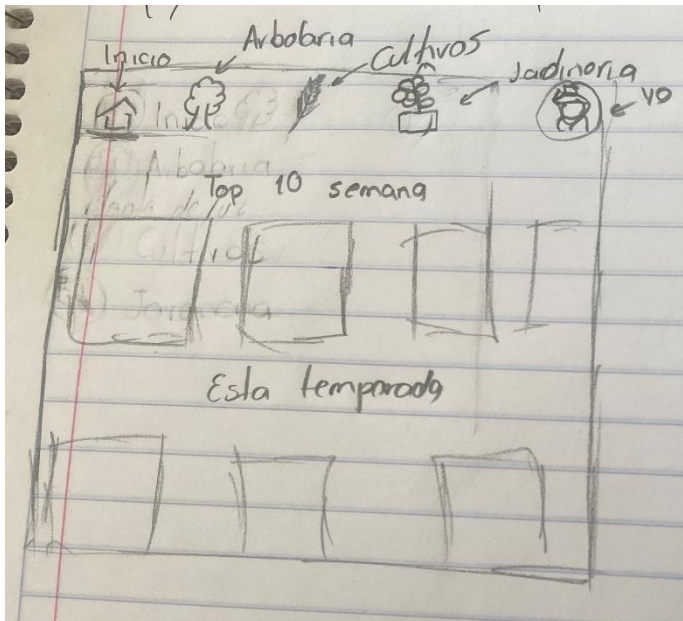 Inicio
Arbolaria
Cultivos
Jadineria
yo
Top 10 semana
Esta temporada